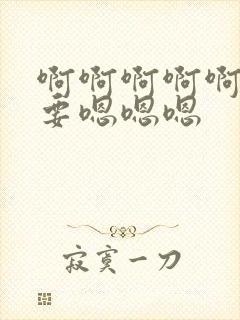 啊啊啊啊啊
要嗯嗯嗯
寂寞一刀